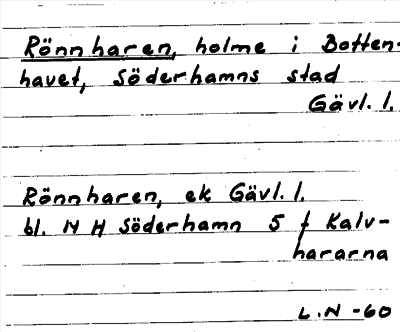 Rönnharen, holme i Botten-
havet, Söderhamns stad
Gävl. l.
Rönnharen, ek Gävl. l.
bl. N H Söderhamn 5 f Kalv-
hararna
L.N -60